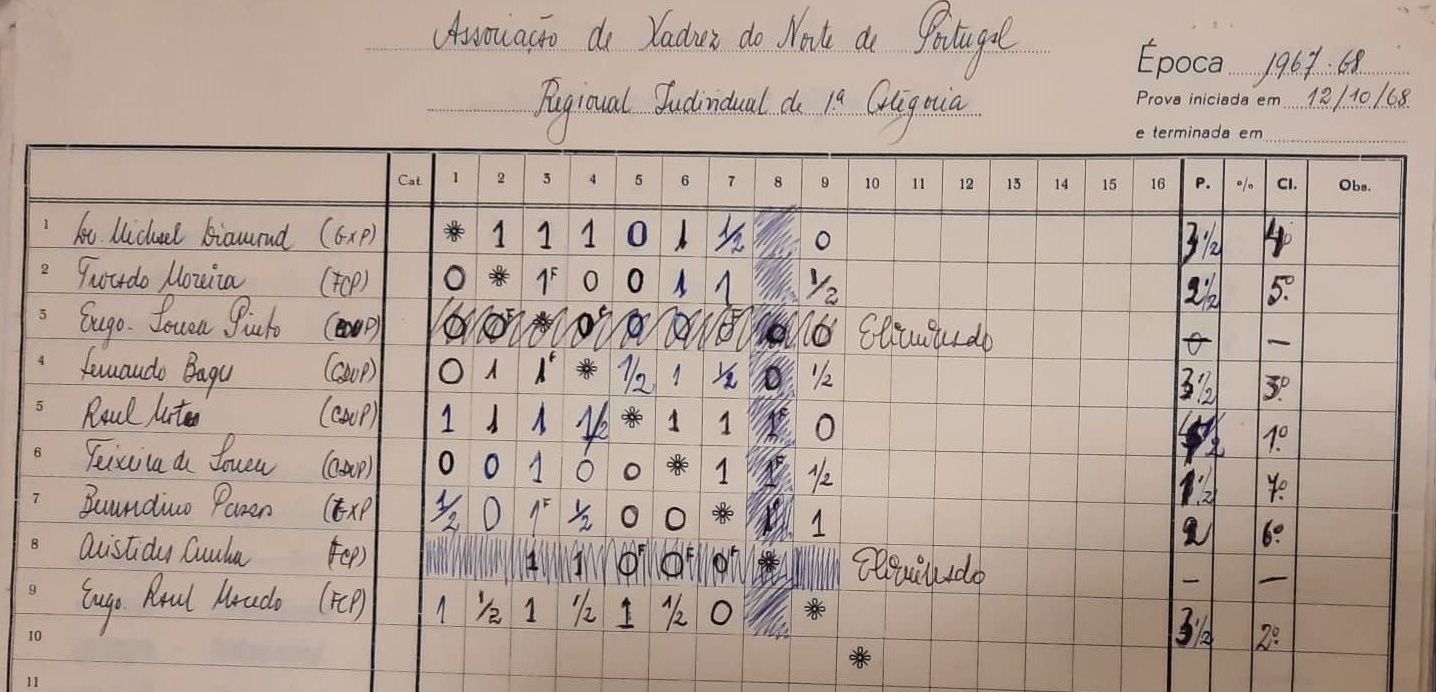 Associação de Xadrez do Norte de Portugal
Época 1967-68
Regional Individual de 1ª Categoria
Prova iniciada em 12/10/68
e terminada em
Cat. 1 2 3 4 5 6 7 8 9 10 11 12 13 14 15 16 P. % Cl. Obs.
1 Dr. Michael Diamond (GXP) * 1 1 1 0 1 1/2 0 3 1/2 4º
2 Moreira (FCP) 0 * 1F 0 0 1 1 1/2 2 1/2 5º
3 Engo. Sousa Pinto 0 0F * 0F 0 0 0F 0 0 Eliminado 0 —
4 Fernando (CDUP) 0 1 1F * 1/2 1 1/2 0 1/2 3 1/2 3º
5 Raul (CDUP) 1 1 1 1/2 * 1 1 1F 0 1º
6 Teixeira de Sousa (CDUP) 0 0 1 0 0 * 1 1F 1/2 1 1/2 7º
7 Bernardino (GXP 1/2 0 1F 1/2 0 0 * 1F 1 2 6º
8 Aristides Cunha FCP) 1 1 0F 0F 0F * Eliminado – —
9 Engo. Raul Macedo (FCP) 1 1/2 1 1/2 1 1/2 0 * 3 1/2 2º
10 *
11